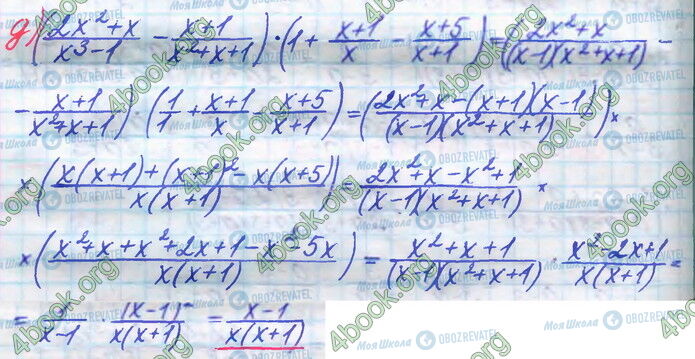 g) ((2x²+x)/(x³-1) - (x+1)/(x²+x+1)) · (1 + (x+1)/x - (x+5)/(x+1)) = ((2x²+x)/((x-1)(x²+x+1)) -
- (x+1)/(x²+x+1)) · (1/1 + (x+1)/x - (x+5)/(x+1)) = ((2x²+x-(x+1)(x-1))/((x-1)(x²+x+1))) ×
× ((x(x+1)+(x+1)²-x(x+5))/(x(x+1))) = (2x²+x-x²+1)/((x-1)(x²+x+1)) ×
× ((x²+x+x²+2x+1-x²-5x)/(x(x+1))) = (x²+x+1)/((x-1)(x²+x+1)) · (x²-2x+1)/(x(x+1)) =
= 1/(x-1) · (x-1)²/(x(x+1)) = (x-1)/(x(x+1))
4book.org
Моя Школа
OBOZREVATEL